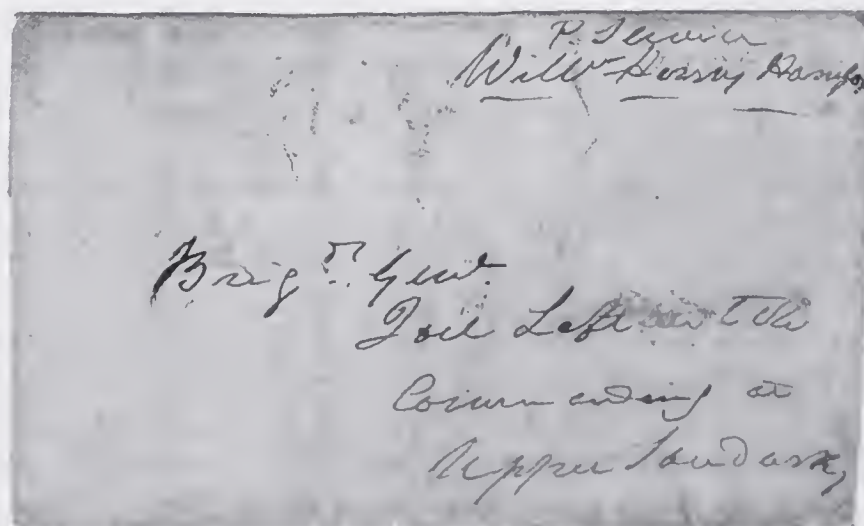 P. Service
Will^m Henry Harrison
Brig^r Genl.
Joel Leftwitch
Commanding at
Upper Sandusky